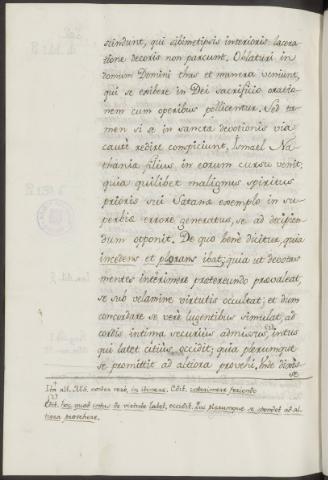 scindunt, qui sibimetipsis interioris lacera
tione decoris non parcunt. Oblaturi in
domum Domini thus et munera veniunt,
qui se exibere in Dei sacrificio oratio
nem cum operibus pollicentur. Sed ta
men si se in sancta devotionis via
cautè redire conspiciunt, Ismael Na
thaniæ filius in eorum cursu venit;
quia quilibet malignus spiritus
prioris sui Satanæ exemplo in su
perbiæ errore generatus, se ad decipien
dum opponit. De quo benè dicitur, quia
incedens et plorans ibat; quia ut devotas
mentes interimere præveniendo prævaleat,
se sub velamine virtutis occultat; et dum
concordare se verè lugentibus simulat, ad
cordis intima securius admissus, intus
qui latet citius occidit; quia plerumque
se promittit ad altiora provehi. Inde
Ita alt. MS. vero, in itinere. Edit.
Edit. hoc quod intus de virtute latet, occidit. Qui plerumque se spondet ad al
tiora provehere.